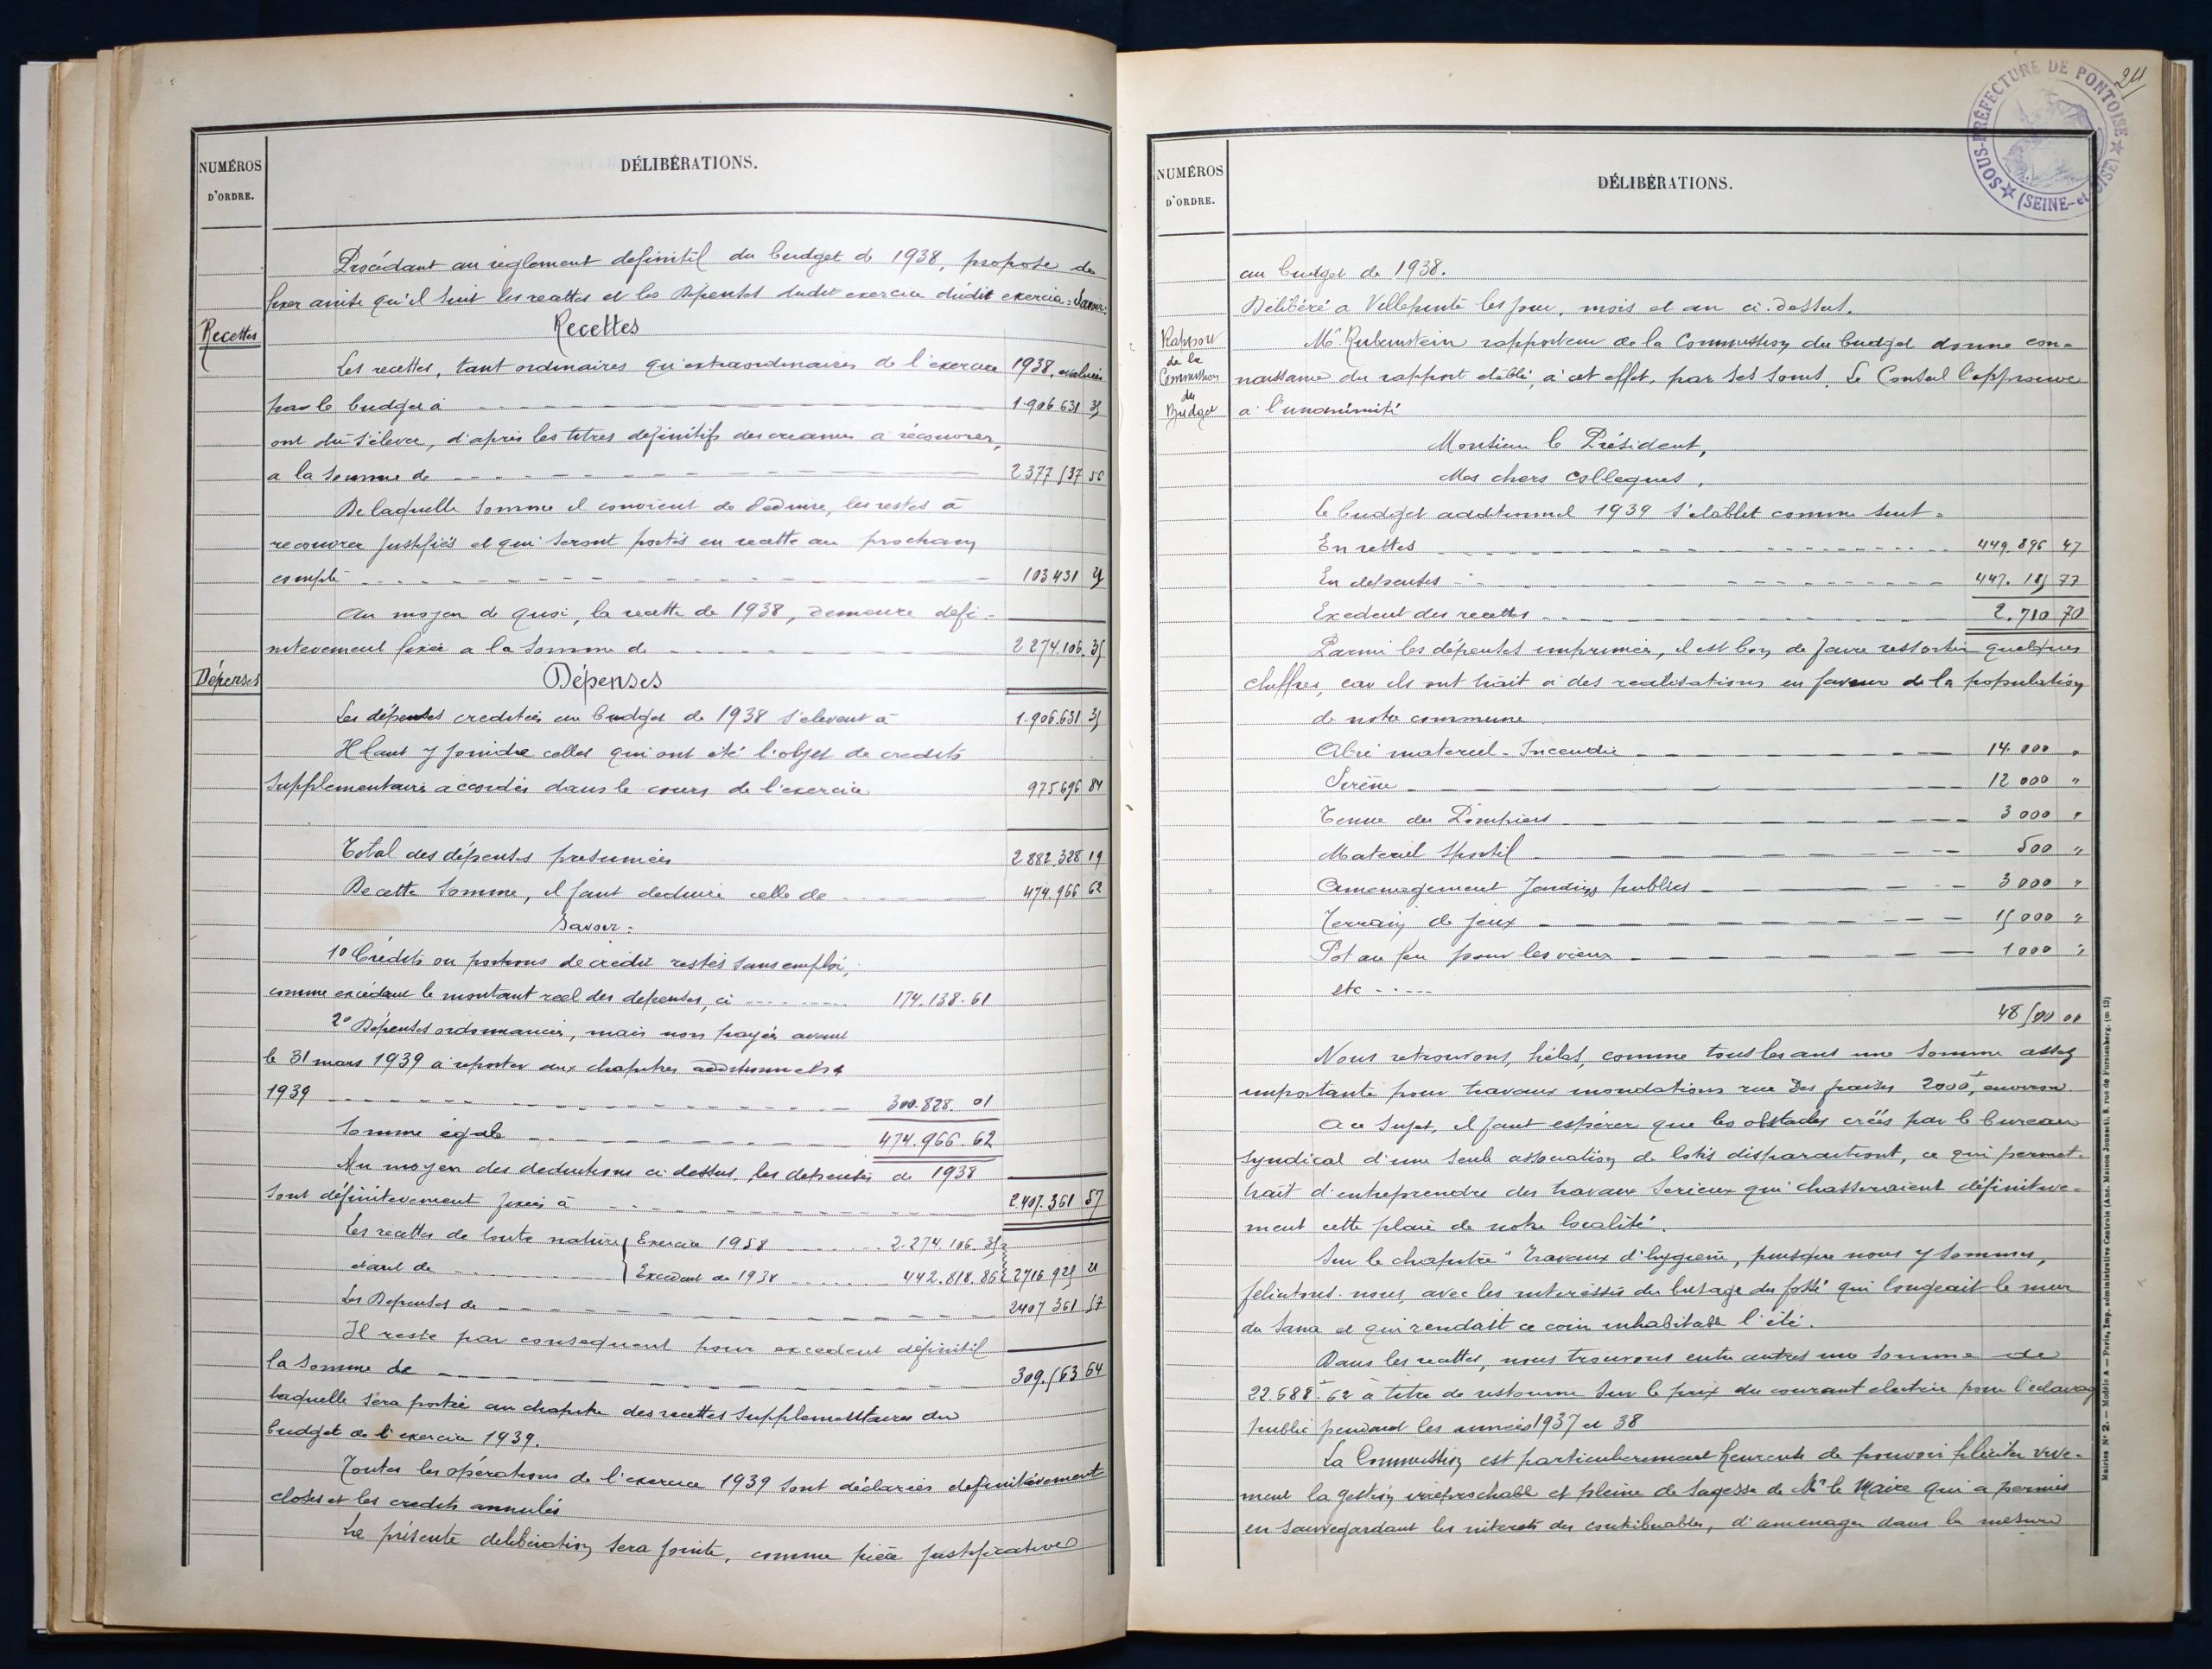 NUMÉROS
D'ORDRE.
DÉLIBÉRATIONS.
Procédant au règlement definitif du budget de 1938, propose de
fixer ainsi qu'il suit les recettes et les Dépenses dudit exercice dudit exercice = Savoir:
Recettes
Recettes
Les recettes, tant ordinaires qu'extraordinaires de l'exercice 1938, evaluées
par le budget à 1.906.631 35
ont dû s'élever, d'après les titres définitifs des creances à récouvrer,
a la somme de 2 377 537 56
De laquelle somme il convient de déduire, les restes à
recouvrer justifiés et qui seront portés en recette au prochain
compte 103 431 21
Au moyen de quoi, la recette de 1938, demeure defi-
nitevement fixée a la somme de 2 274.106. 35
Dépenses
Dépenses
Les dépenses creditées au budget de 1938 s'elevent à 1.906.631 35
Il faut y joindre celles qui ont été l'objet de credits
supplementaires accordés dans le cours de l'exercice 975 696 84
Total des dépenses presumées 2 882.328 19
De cette somme, il faut deduire celle de 474.966 62
Savoir:
1° Crédits ou portions de credit restés sans emploi,
comme excédant le montant reel des depenses, ci 174.138.61
2° Dépenses ordonnancées, mais non payées avant
le 31 mars 1939 à reporter aux chapitres additionnels
1939 300.828. 01
Somme égale 474.966.62
Au moyen des deductions ci-dessus, les depenses de 1938
sont définitevement fixées à 2.407.361 57
Les recettes de toute nature Exercice 1938 2.274.106.35
etant de Excedent de 1938 442.818.86 2716 925 21
Les Depenses de 2407 361 57
Il reste par consequent pour excedent définitif
la somme de 309.563 64
laquelle sera portée au chapitre des recettes supplementaires du
budget de l'exercice 1939.
Toutes les opérations de l'exercice 1939 sont déclarées definitivement
closes et les credits annulés
La présente deliberation sera jointe, comme pièce justificative
24
SOUS-PRÉFECTURE DE PONTOISE
(SEINE-et-OISE)
NUMÉROS
D'ORDRE.
DÉLIBÉRATIONS.
au budget de 1938.
Délibéré a Villepinte les jour, mois et an ci-dessus.
Rapport
de la
Commission
du
Budget
Mr Rubinstein rapporteur de la Commission du budget donne con-
naissance du rapport etabli, à cet effet, par ses soins. Le Conseil l'approuve
a l'unanimité
Monsieur le Président,
Mes chers Collegues,
Le budget additionnel 1939 s'etablit comme suit =
En rettes 449.896 47
En depenses 447. 185 77
Excedent des recettes 2.710 70
Parmi les dépenses imprimées, il est bon de faire ressortir quelques
chiffres, car ils ont trait à des realisations en faveur de la population
de notre commune
Abri materiel-Incendie 14.000 "
Sirène 12 000 "
Tenue des Pompiers 3 000 "
Materiel sportif 500 "
Amenagement Jardins publics 3 000 "
Terrain de jeux 15 000 "
Pot au feu pour les vieux 1 000 "
etc
48 500 00
Nous retrouvons, hélas, comme tous les ans une somme assez
importante pour travaux inondations rue des fraises 2000f environ.
A ce sujet, il faut espérer que les obstacles créés par le bureau
syndical d'une seule association de lotis disparaitront, ce qui permet-
trait d'entreprendre des travaux serieux qui chasseraient définitive-
ment cette plaie de notre localité.
Sur le chapitre "Travaux d'hygiene, puisque nous y sommes,
felicitons-nous, avec les interessés du busage du fossé qui longeait le mur
du Sana et qui rendait ce coin inhabitable l'été.
Dans les recettes, nous trouvons entre autres une somme de
22.688f 62 à titre de ristourne sur le prix du courant electrique pour l'eclairage
public pendant les années 1937 et 38
La Commission est particulierement heureuse de pouvoir féliciter vive-
ment la gestion irréprochable et pleine de sagesse de Mr le Maire qui a permis
en sauvegardant les interets des contribuables, d'amenager dans la mesure
Mairies N° 2. — Modèle A — Paris, Imp. administrative Centrale (Anc. Maison Jousset), 8, rue de Furstenberg. (m 13)